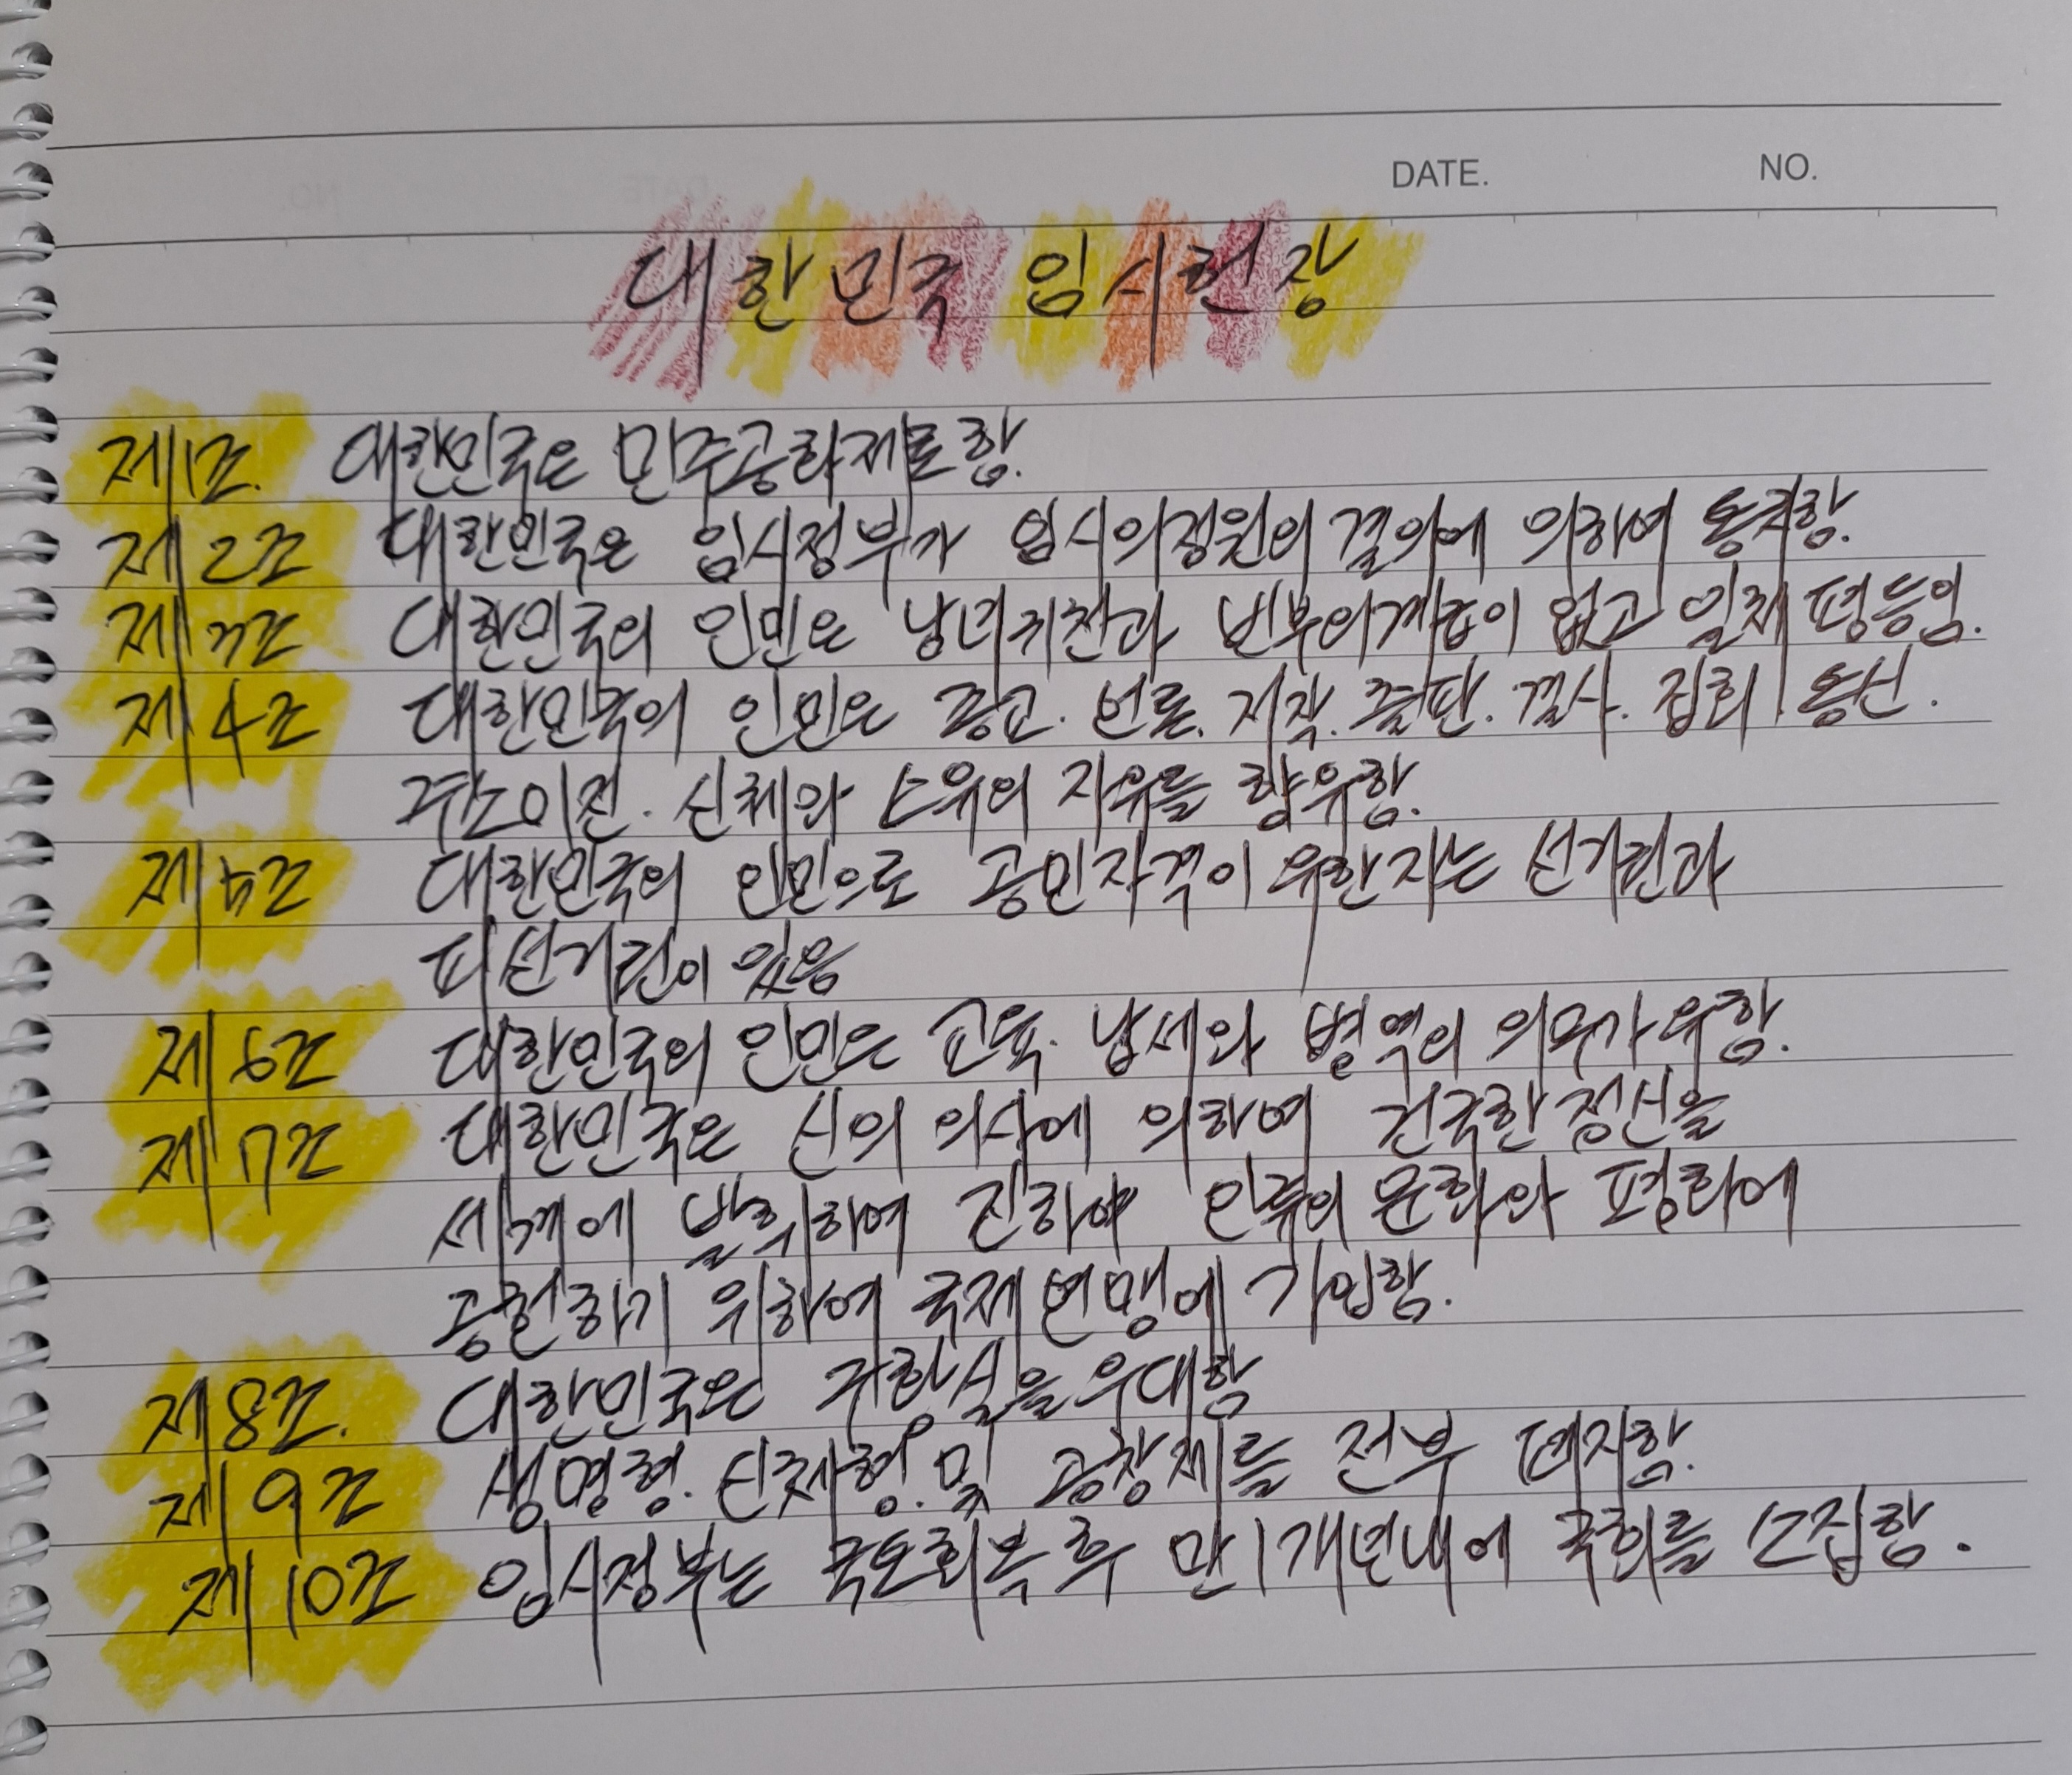 DATE. NO.
대한민국 임시헌장
제1조. 대한민국은 민주공화제로함.
제2조 대한민국은 임시정부가 임시의정원의 결의에 의하여 통치함.
제3조 대한민국의 인민은 남녀귀천과 빈부의계급이 없고 일체 평등임.
제4조 대한민국의 인민은 종교. 언론. 저작. 출판. 결사. 집회. 통신.
주소이전. 신체와 소유의 자유를 향유함.
제5조 대한민국의 인민으로 공민자격이 유한자는 선거권과
피선거권이 있음
제6조 대한민국의 인민은 교육. 납세와 병역의 의무가유함.
제7조 대한민국은 신의 의사에 의하여 건국한정신을
세계에 발휘하여 진하야 인류의 문화와 평화에
공헌하기 위하여 국제연맹에 가입함.
제8조. 대한민국은 구황실을우대함
제9조 생명형. 신체형. 및 공창제를 전부 폐지함.
제10조 임시정부는 국토회복후 만1개년내에 국회를 소집함.